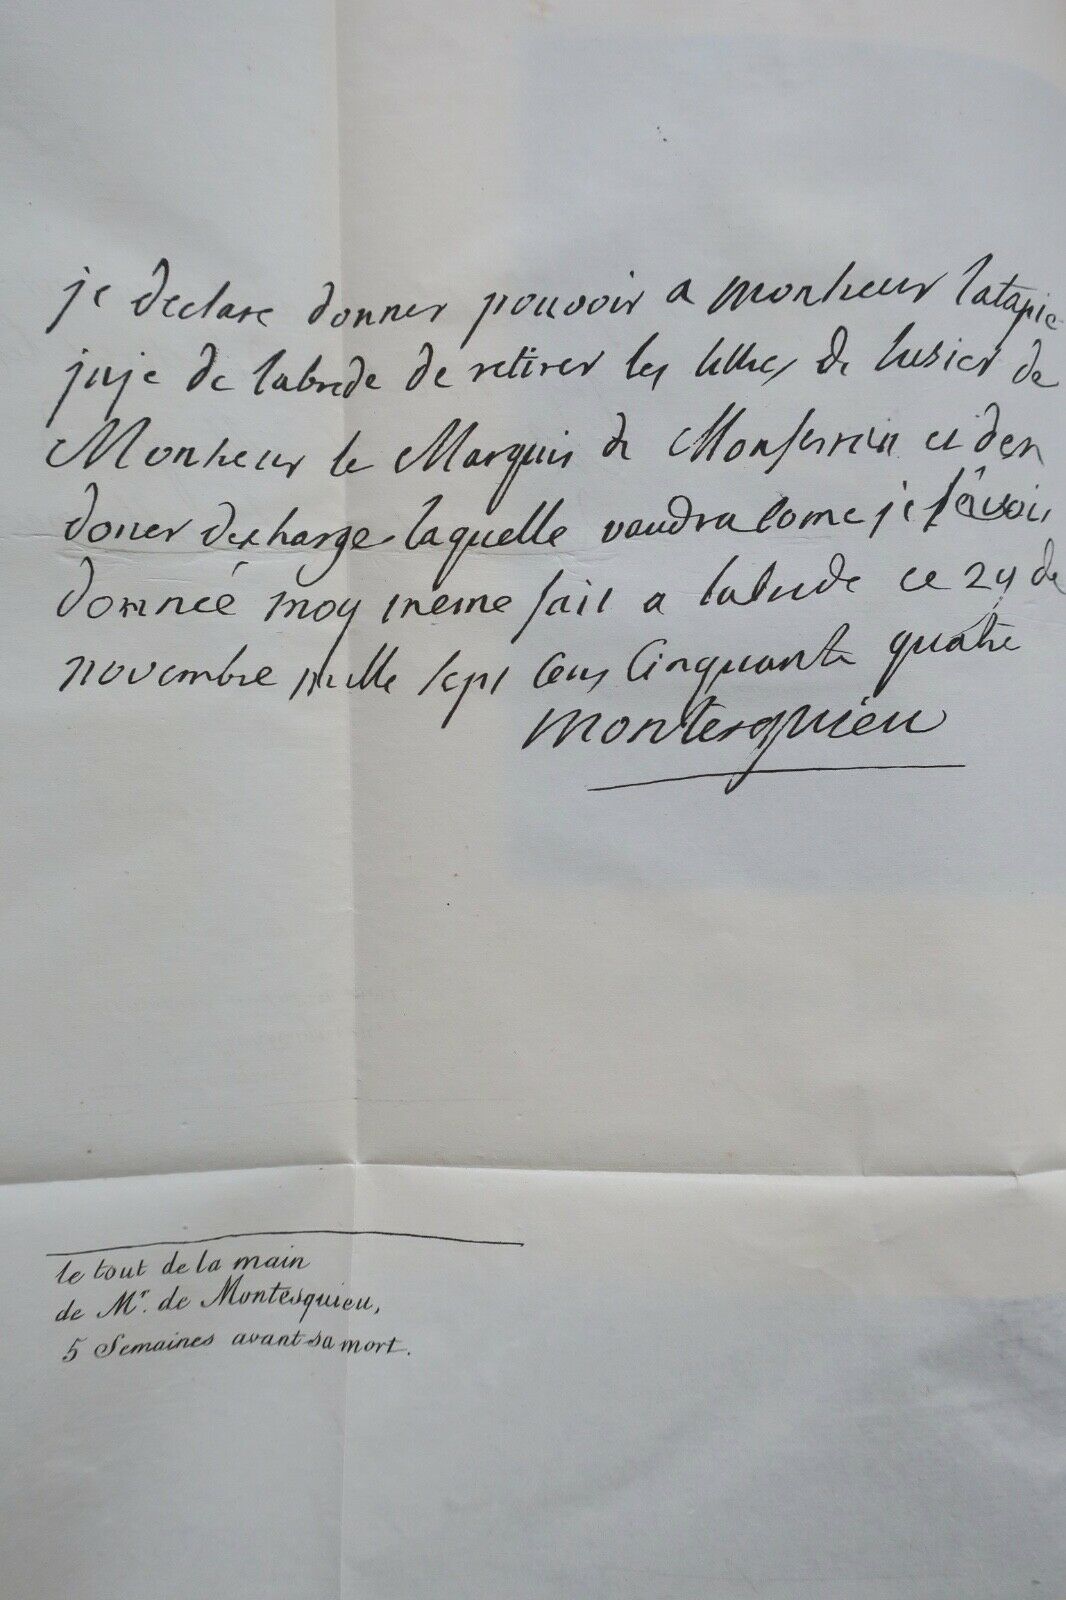 je declare donner pouvoir a monsieur latapie
juje de labrede de retirer les titres de lusier de
Monsieur le Marquis de Monferrein et den
doner decharge laquelle vaudra come je lavois
donnée moy meme fait a labrede ce 24 de
novembre mille sept cens cinquante quatre
Montesquieu
le tout de la main
de Mr. de Montesquieu,
5 Semaines avant sa mort.